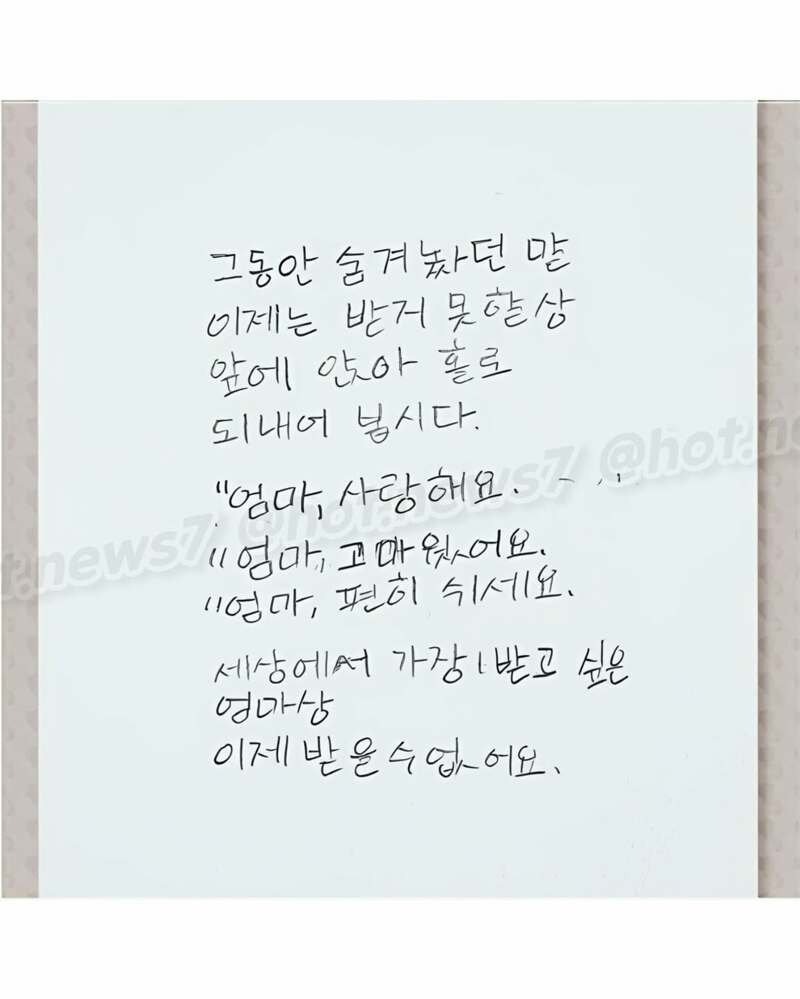 그동안 숨겨놨던 말
이제는 받거 못할상
앞에 앉아 홀로
되내어 봅시다.
"엄마, 사랑해요.
"엄마, 고마웠어요.
"엄마, 편히 쉬세요.
세상에서 가장 받고 싶은
엄마상
이제 받을수 없어요.
@hot.news7 @hot.news7 @hot.news7